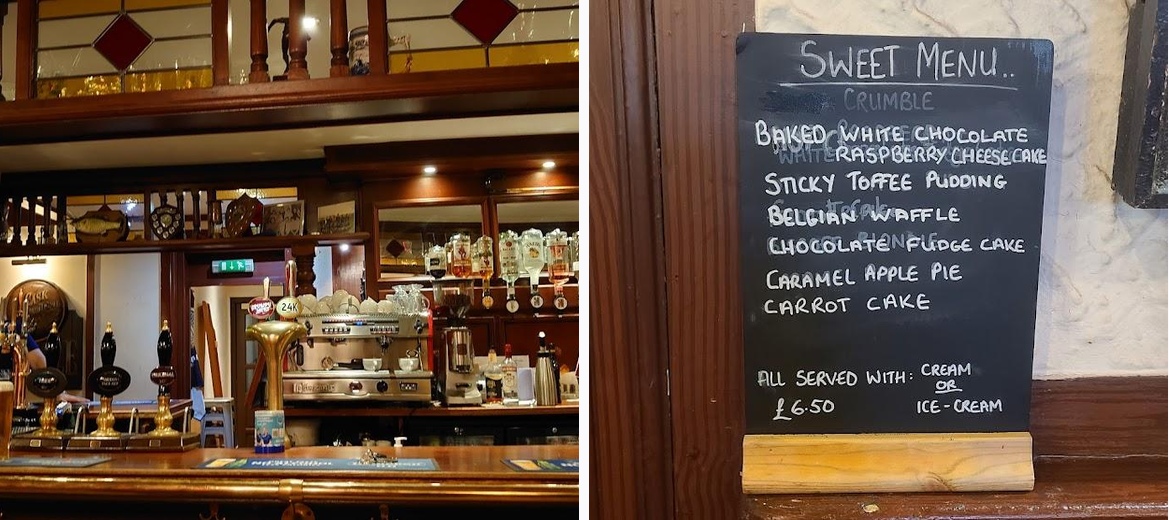 24K
SWEET MENU..
CRUMBLE
BAKED WHITE CHOCOLATE
RASPBERRY CHEESECAKE
STICKY TOFFEE PUDDING
BELGIAN WAFFLE
CHOCOLATE FUDGE CAKE
CARAMEL APPLE PIE
CARROT CAKE
ALL SERVED WITH: CREAM
OR
£6.50 ICE-CREAM